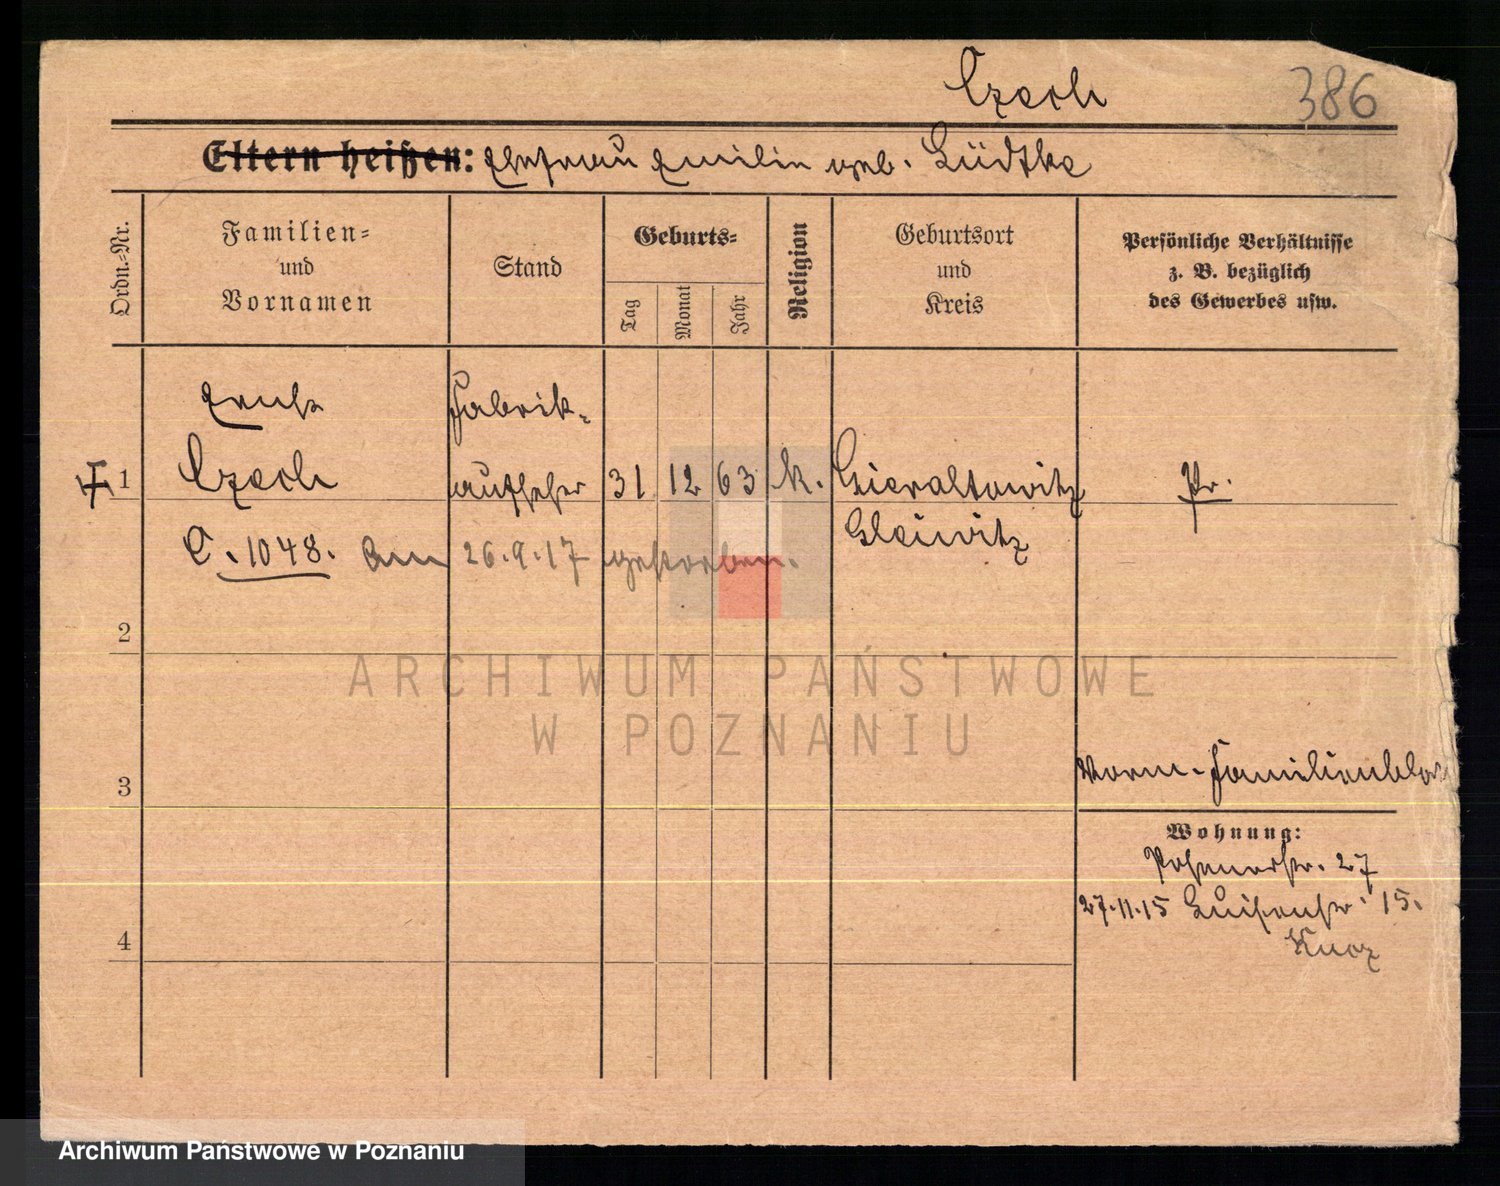 Czech
386
Eltern heißen: Ehefrau Emilie geb. Lüdtke
Ordn.-Nr.
Familien-
und
Vornamen
Stand
Geburts-
Tag
Monat
Jahr
Religion
Geburtsort
und
Kreis
Persönliche Verhältnisse
z. B. bezüglich
des Gewerbes usw.
Ernst Fabrik-
1 Czech aufseher 31 12 63 k. Gieraltowitz Pr.
Gleiwitz
C. 1048. Am 26.9.17 gestorben.
2
3
Familienblatt
Wohnung:
Posenerstr. 27
27.11.15 Luisenstr. 15.
4
ARCHIWUM PAŃSTWOWE
W POZNANIU
Archiwum Państwowe w Poznaniu